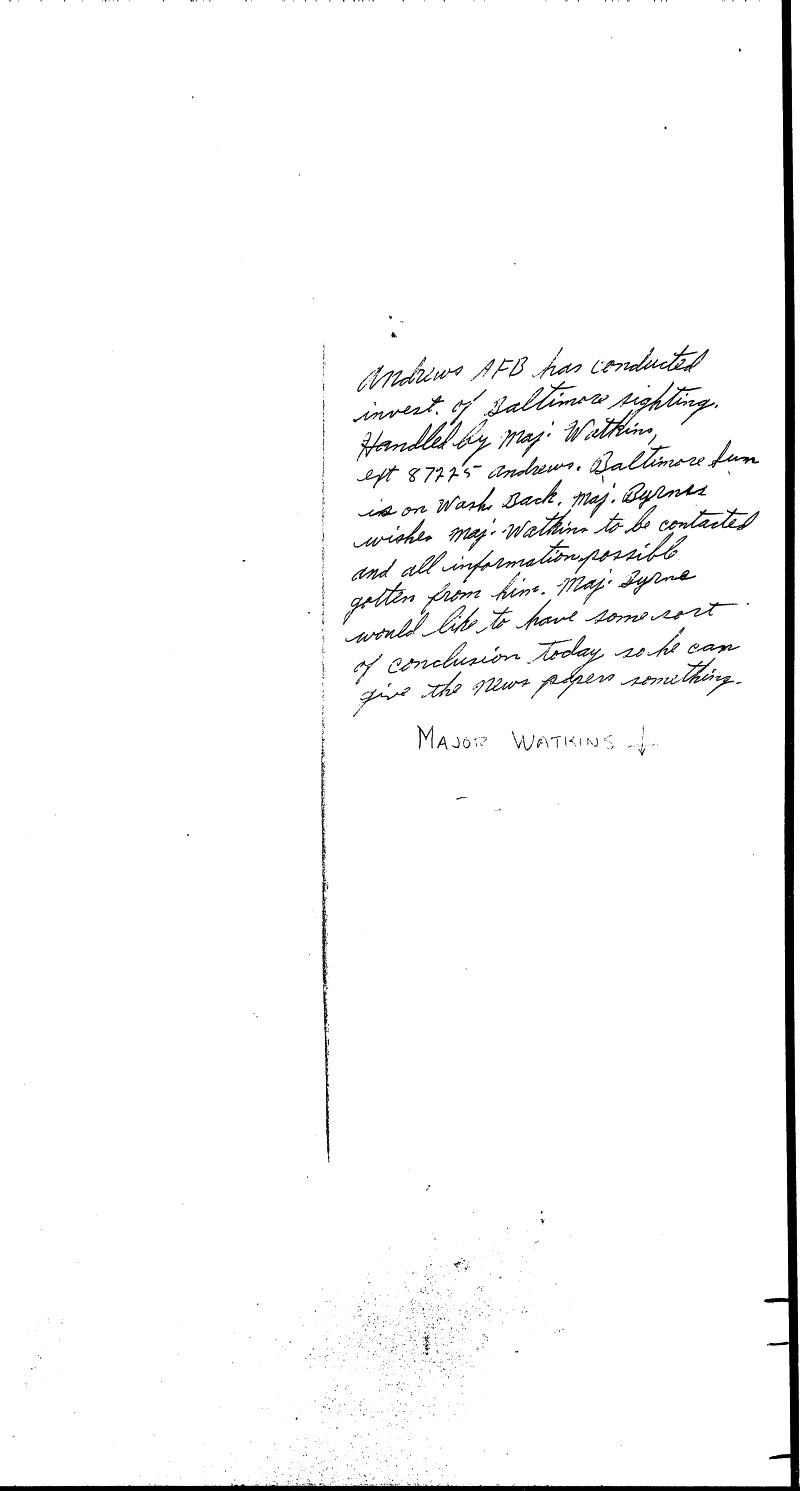 Andrews AFB has conducted
invest. of Baltimore sighting.
Handled by Maj. Watkins,
ext 87225 Andrews. Baltimore Sun
is on Wash. Back. Maj. Byrnes
wishes Maj. Watkins to be contacted
and all information possible
gotten from him. Maj. Byrne
would like to have some sort
of conclusion today so he can
give the News papers something.
MAJOR WATKINS